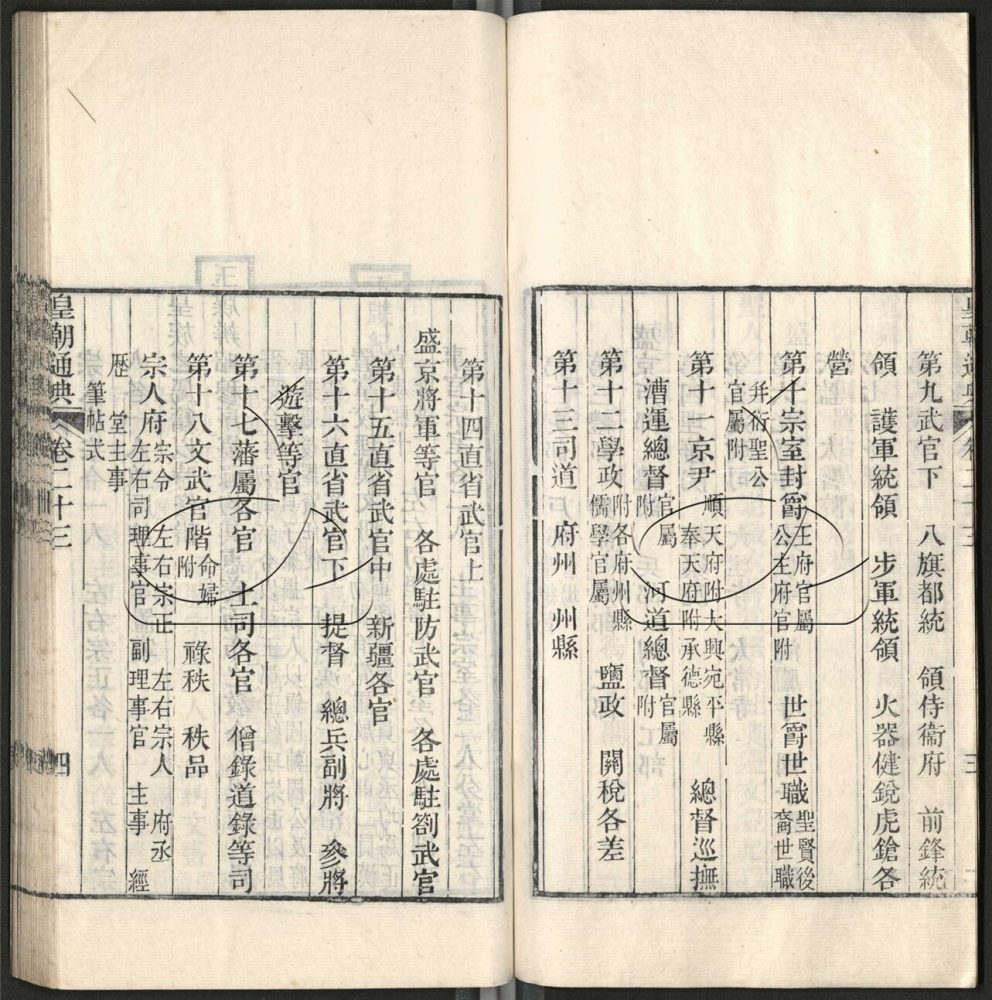 第九武官下 八旗都統 領侍衞府 前鋒統
領 護軍統領 步軍統領 火器健銳虎鎗各
營
第十宗室封爵 王府官屬 公主府官附 世爵世職 聖賢後裔世職
并衍聖公官屬附
第十一京尹 順天府附大興宛平縣 奉天府附承德縣 總督巡撫
漕運總督 官屬附 河道總督 官屬附
第十二學政 附各府州縣儒學官屬 鹽政 關稅各差
第十三司道 府州 州縣
皇朝通典 卷二十三 三
第十四直省武官上
盛京將軍等官 各處駐防武官 各處駐劄武官
第十五直省武官中 新疆各官
第十六直省武官下 提督 總兵副將 參將
遊擊等官
第十七藩屬各官 土司各官 僧錄道錄等司
第十八文武官階 命婦附 祿秩 秩品
宗人府 宗令 左右宗正 左右宗人 府丞 左右司理事官 副理事官 主事 經
歷 堂主事 筆帖式
皇朝通典 卷二十三 四